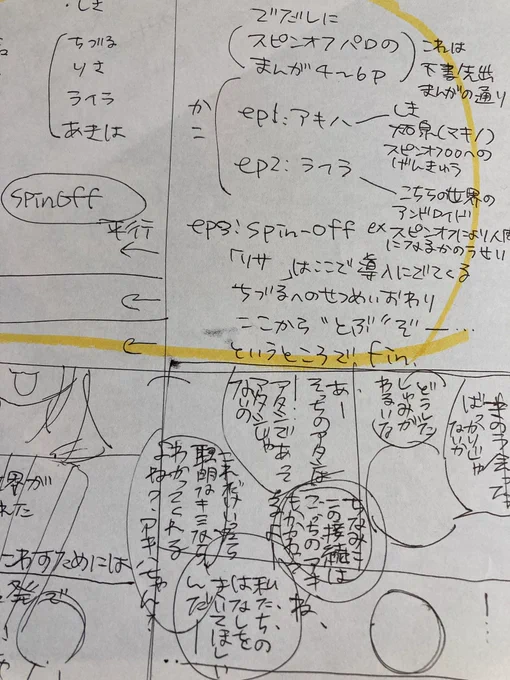 しき
ちづる
りさ
ライラ
あきは
spinoff
平行
でだしに
スピンオフパロの
まんが4〜6p
これは
下書/先出
まんがの通り
かこ
ep1:アキハ
しき
(マキノ)
スピンオフ〇〇への
げんきゅう
ep2:ライラ
こちらの世界の
アンドロイド
ep3:spin-off ex
スピンオフにより人間
になるかのうせい
「リサ」はここで導入にでてくる
ちづるへのせつめいおわり
ここから"とぶ"ぞー…
というところでfin.
ばっかりじゃ
ないか
どうした
しゅみが
わるいな
あー
そっちのアタシは
アタシであって
アタシじゃ
ないの
ちなみに
この接続は
こっちのアキ
ね、
これだけ言ったら
聡明なキミなら
わかってくれる
よね?アキハちゃん?
私たちの
はなしを
きいてほしい
んだ
界が
れた
こわすためには
発で